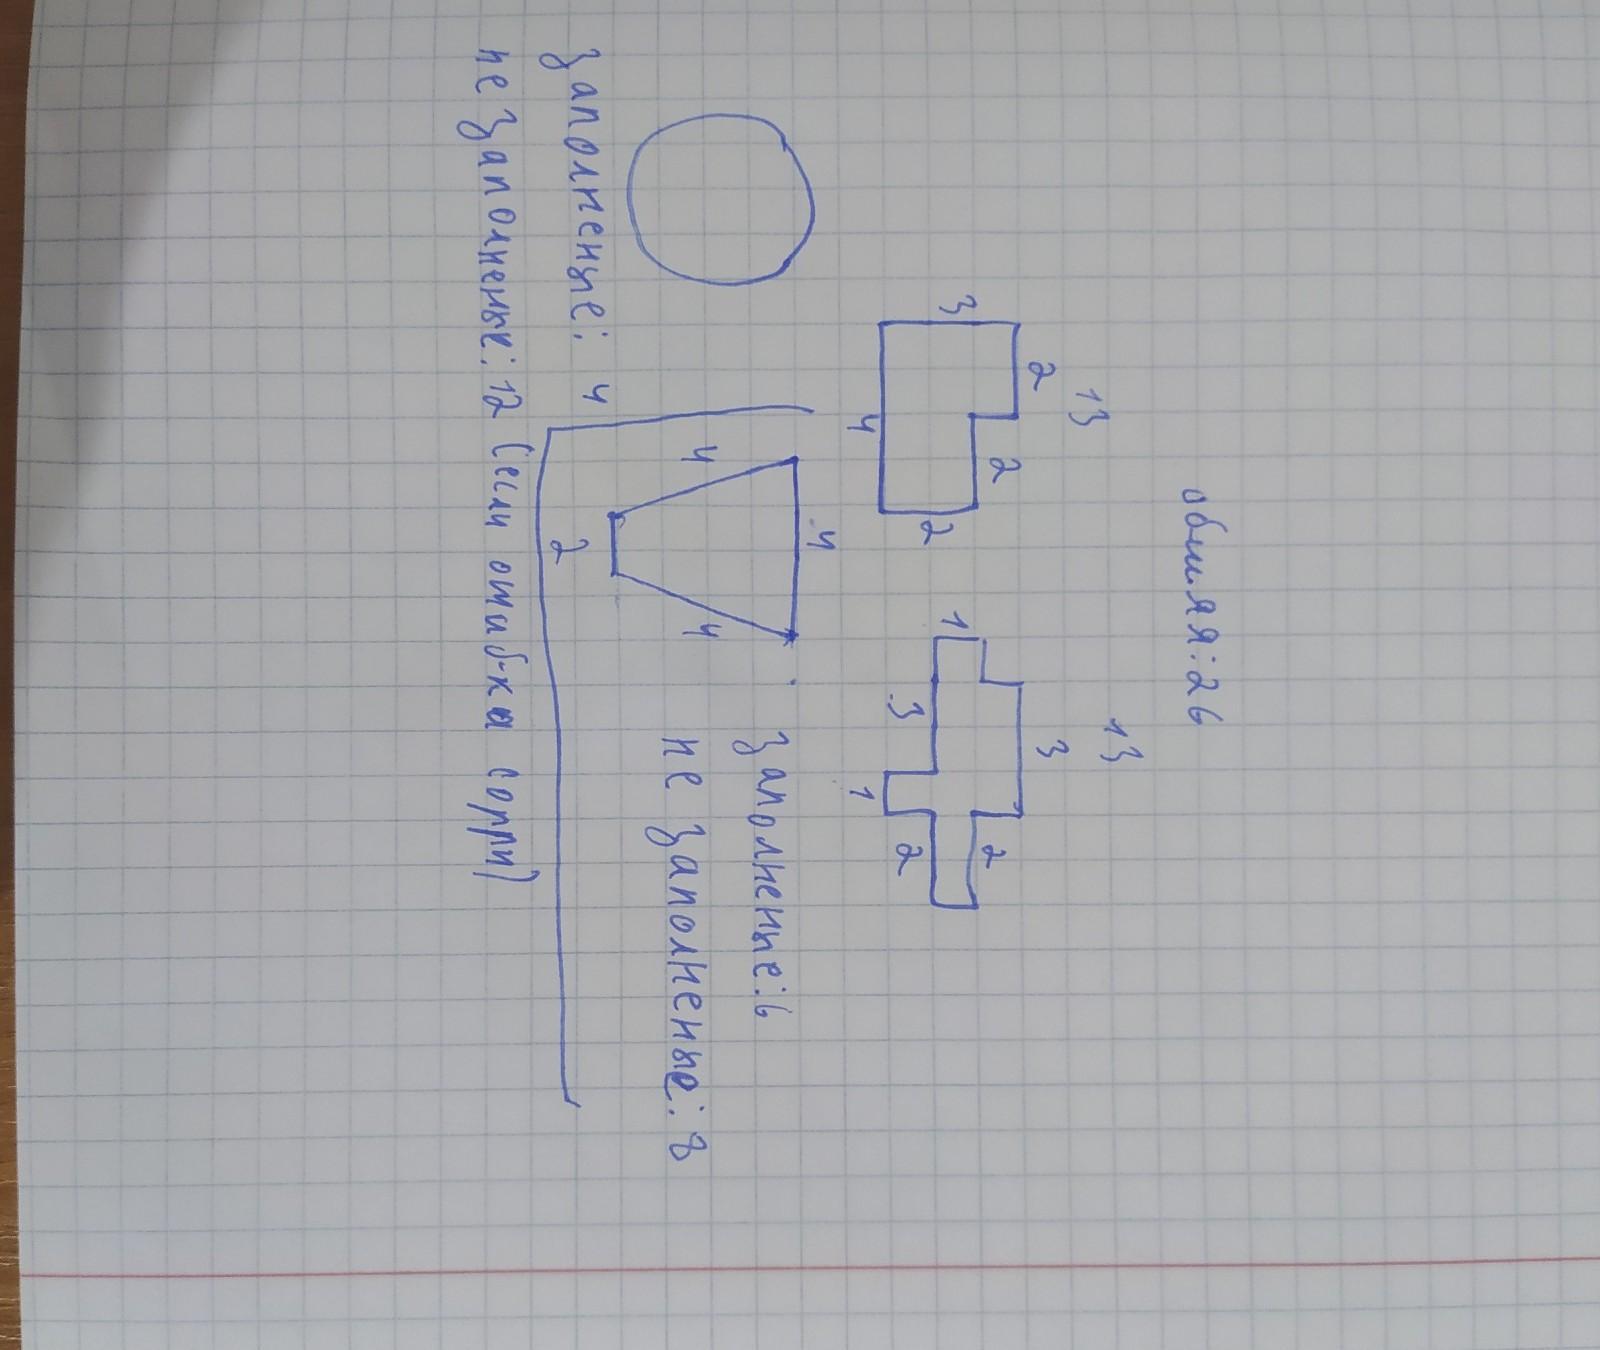 общая:26
13
13
3
2
2
4
2
1
3
3
2
1
2
4
4
4
2
заполненые:6
не заполненые:8
заполненые: 4
не заполненые: 12 (если ошибка сорри)